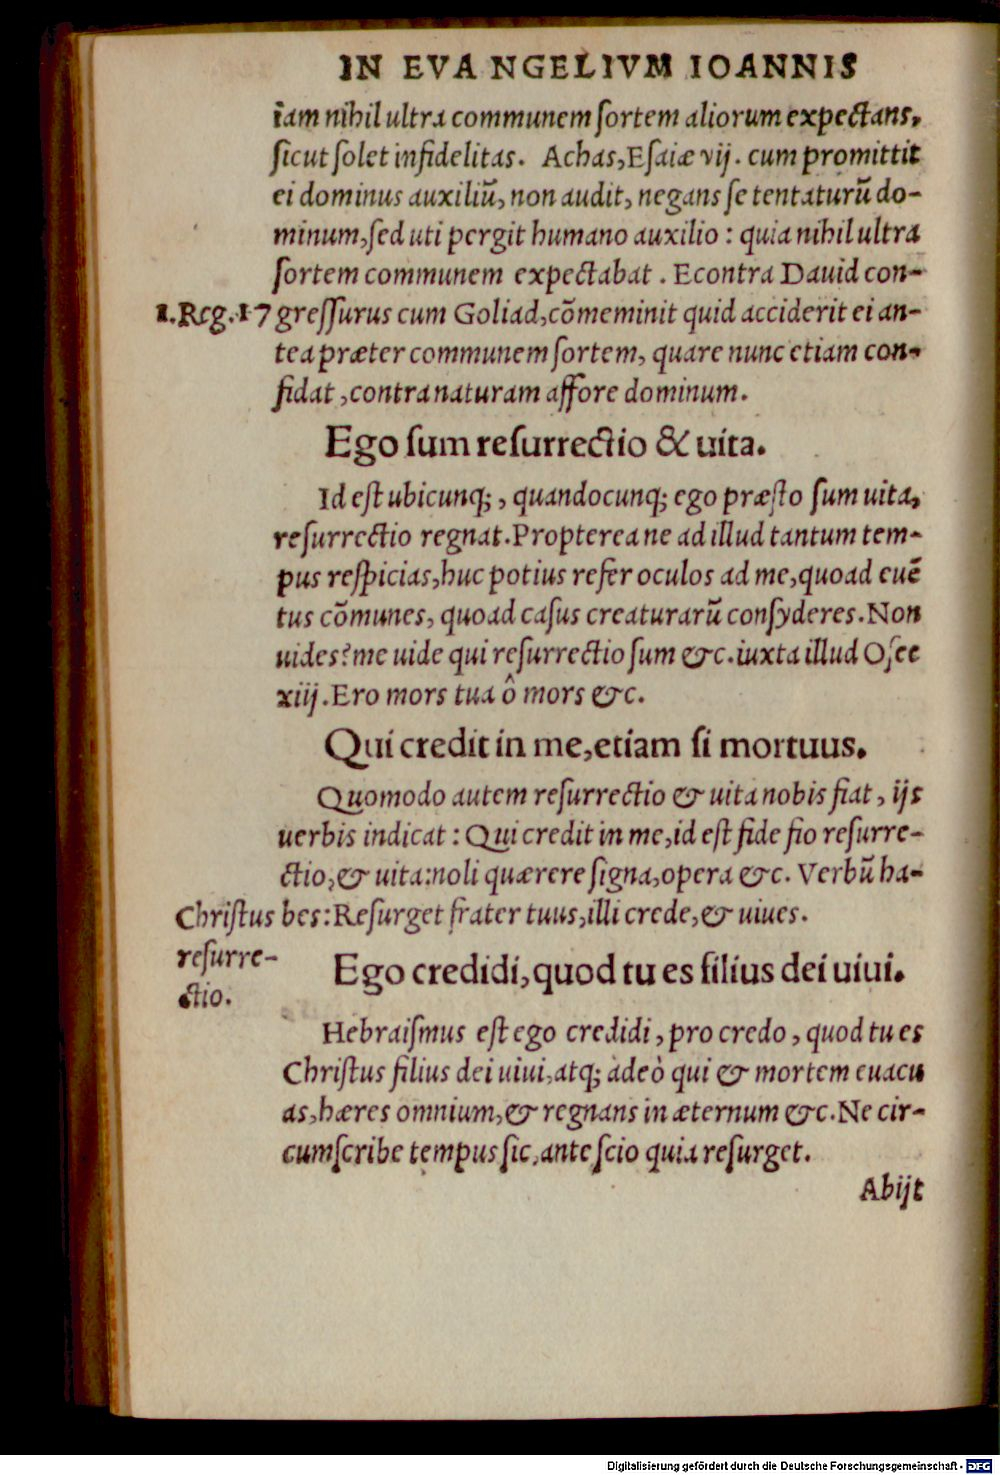 IN EVANGELIVM IOANNIS
iam nihil ultra communem ſortem aliorum expectans,
ſicut ſolet infidelitas. Achas, Eſaiæ vij. cum promittit
ei dominus auxiliū, non audit, negans ſe tentaturū do-
minum, ſed uti pergit humano auxilio: quia nihil ultra
ſortem communem expectabat. Econtra Dauid con-
1. Reg. 17 greſſurus cum Goliad, cōmeminit quid acciderit ei an-
tea præter communem ſortem, quare nunc etiam con-
fidat, contra naturam affore dominum.
Ego ſum reſurrectio & uita.
Id eſt ubicunq;, quandocunq; ego præſto ſum uita,
reſurrectio regnat. Propterea ne ad illud tantum tem-
pus reſpicias, huc potius refer oculos ad me, quoad euē
tus cōmunes, quoad caſus creaturarū conſyderes. Non
uides? me uide qui reſurrectio ſum &c. iuxta illud Oſee
xiij. Ero mors tua ô mors &c.
Qui credit in me, etiam ſi mortuus.
Quomodo autem reſurrectio & uita nobis fiat, ijs
uerbis indicat: Qui credit in me, id eſt fide fio reſurre-
ctio, & uita: noli quærere ſigna, opera &c. Verbū ha-
bes: Reſurget frater tuus, illi crede, & uiues.
Chriſtus
reſurre-
ctio.
Ego credidi, quod tu es filius dei uiui.
Hebraiſmus eſt ego credidi, pro credo, quod tu es
Chriſtus filius dei uiui, atq; adeò qui & mortem euacu
as, hæres omnium, & regnans in æternum &c. Ne cir-
cumſcribe tempus ſic, ante ſcio quia reſurget.
Abijt
Digitalisierung gefördert durch die Deutsche Forschungsgemeinschaft - DFG